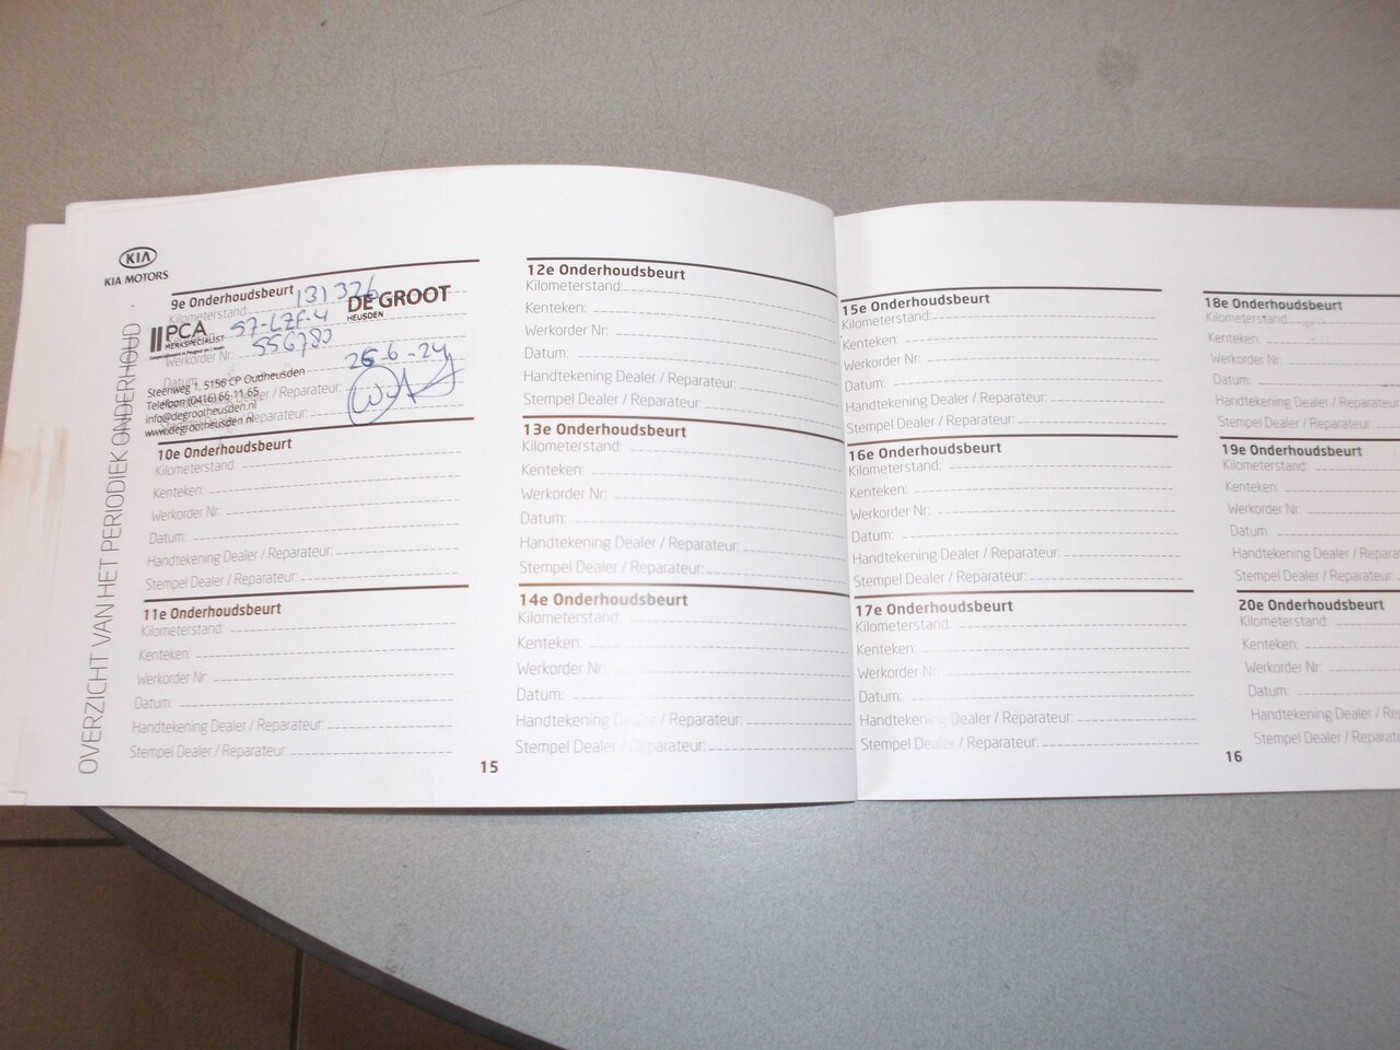 KIA
KIA MOTORS
OVERZICHT VAN HET PERIODIEK ONDERHOUD
9e Onderhoudsbeurt
Kilometerstand: 131 326
DE GROOT
HEUSDEN
PCA
MERKSPECIALIST
57-LZF-4
Werkorder Nr: 556780
Datum: 26-6-24
Steenweg 1, 5156 CP Oudheusden
Telefoon (0416) 66 11 65
info@degrootheusden.nl
www.degrootheusden.nl
10e Onderhoudsbeurt
Kilometerstand:
Kenteken:
Werkorder Nr:
Datum:
Handtekening Dealer / Reparateur:
Stempel Dealer / Reparateur:
11e Onderhoudsbeurt
Kilometerstand:
Kenteken:
Werkorder Nr:
Datum:
Handtekening Dealer / Reparateur:
Stempel Dealer / Reparateur:
12e Onderhoudsbeurt
Kilometerstand:
Kenteken:
Werkorder Nr:
Datum:
Handtekening Dealer / Reparateur:
Stempel Dealer / Reparateur:
13e Onderhoudsbeurt
Kilometerstand:
Kenteken:
Werkorder Nr:
Datum:
Handtekening Dealer / Reparateur:
Stempel Dealer / Reparateur:
14e Onderhoudsbeurt
Kilometerstand:
Kenteken:
Werkorder Nr:
Datum:
Handtekening Dealer / Reparateur:
Stempel Dealer / Reparateur:
15
15e Onderhoudsbeurt
Kilometerstand:
Kenteken:
Werkorder Nr:
Datum:
Handtekening Dealer / Reparateur:
Stempel Dealer / Reparateur:
16e Onderhoudsbeurt
Kilometerstand:
Kenteken:
Werkorder Nr:
Datum:
Handtekening Dealer / Reparateur:
Stempel Dealer / Reparateur:
17e Onderhoudsbeurt
Kilometerstand:
Kenteken:
Werkorder Nr:
Datum:
Handtekening Dealer / Reparateur:
Stempel Dealer / Reparateur:
18e Onderhoudsbeurt
Kilometerstand:
Kenteken:
Werkorder Nr:
Datum:
Handtekening Dealer / Reparateur
Stempel Dealer / Reparateur:
19e Onderhoudsbeurt
Kilometerstand:
Kenteken:
Werkorder Nr:
Datum:
Handtekening Dealer / Repara
Stempel Dealer / Reparateur:
20e Onderhoudsbeurt
Kilometerstand:
Kenteken:
Werkorder Nr:
Datum:
Handtekening Dealer / Rep
Stempel Dealer / Reparate
16